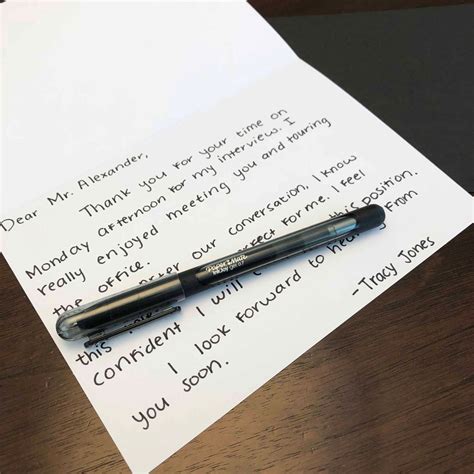 Dear Mr. Alexander,
Thank you for your time on
Monday afternoon for my interview. I
really enjoyed meeting you and touring
the office.
After our conversation, I know
this for me. I feel
confident I will this position.
I look forward to hearing from
you soon.
-Tracy Jones
Paper Mate
InkJoy Gel 0.7